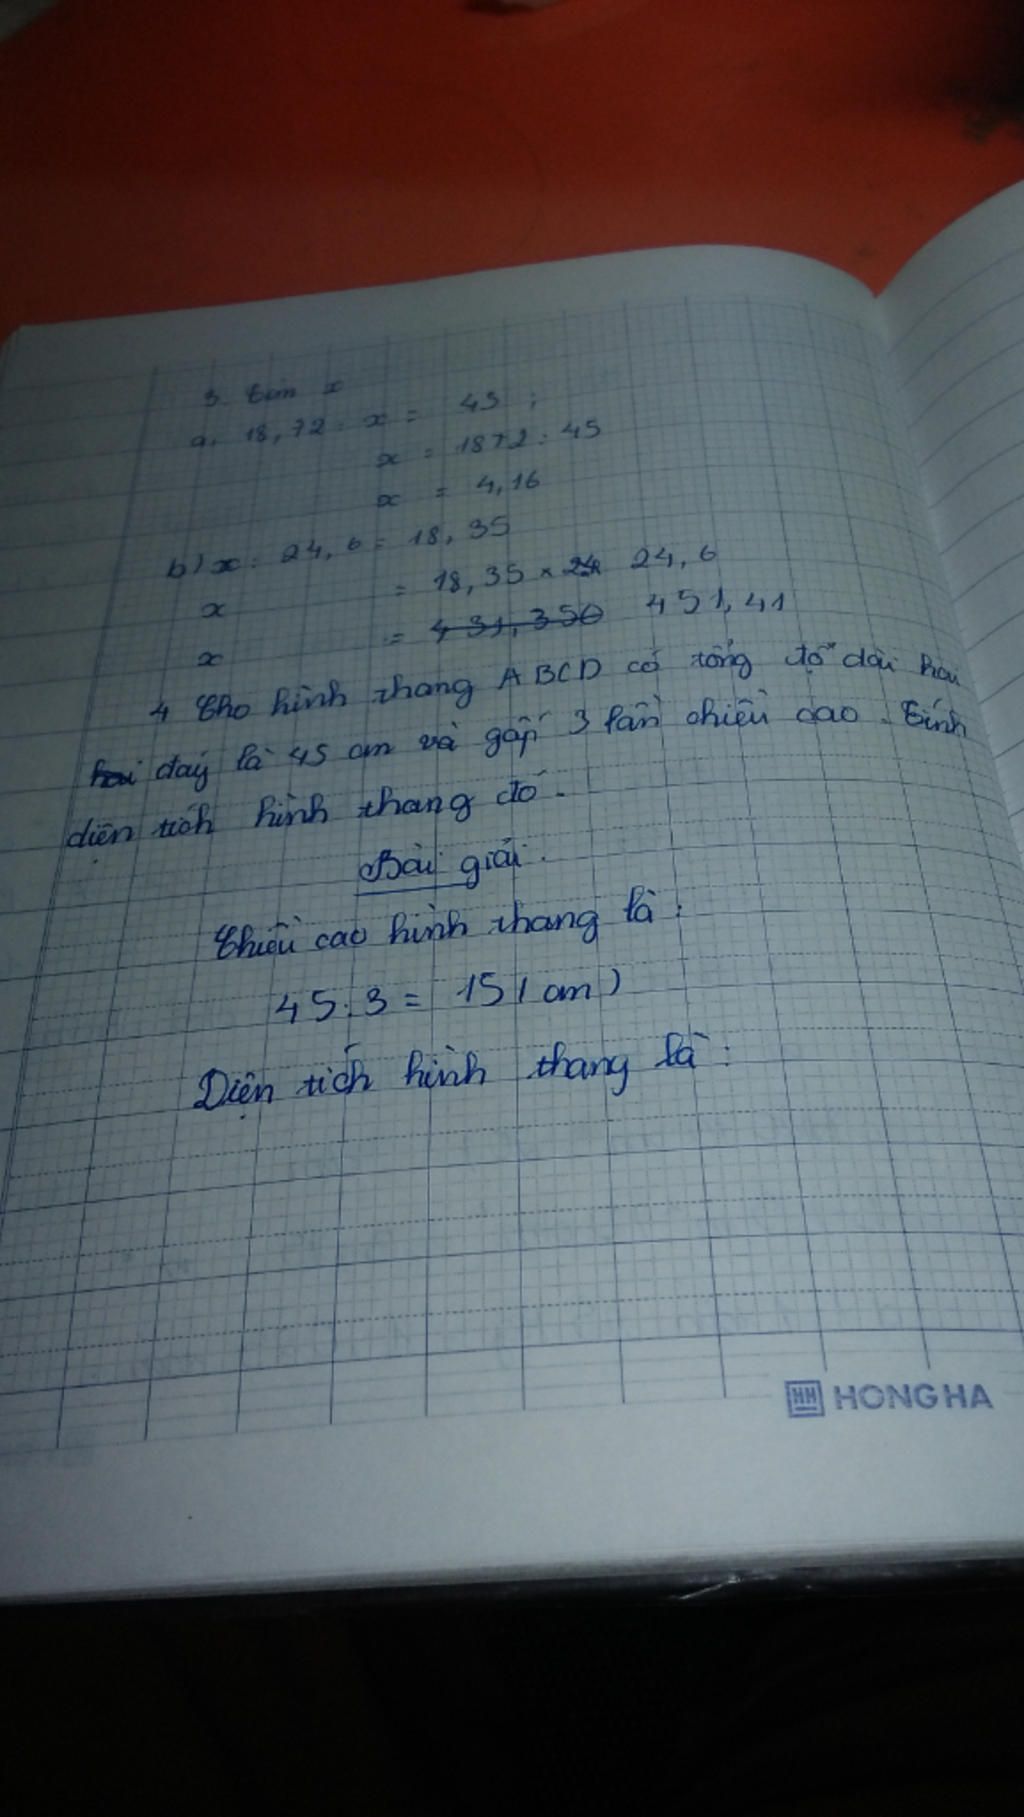 3 Tìm x
a, 18,72 : x = 45 ;
x = 1872 : 45
x = 4,16
b) x : 24,6 = 18,35
x = 18,35 x 24,6
x = 451,41
4 Cho hình thang ABCD có tổng độ dài hai
đáy là 45 cm và gấp 3 lần chiều cao. Tính
diện tích hình thang đó.
Bài giải.
Chiều cao hình thang là:
45 : 3 = 15 (cm)
Diện tích hình thang là:
HH HONG HA